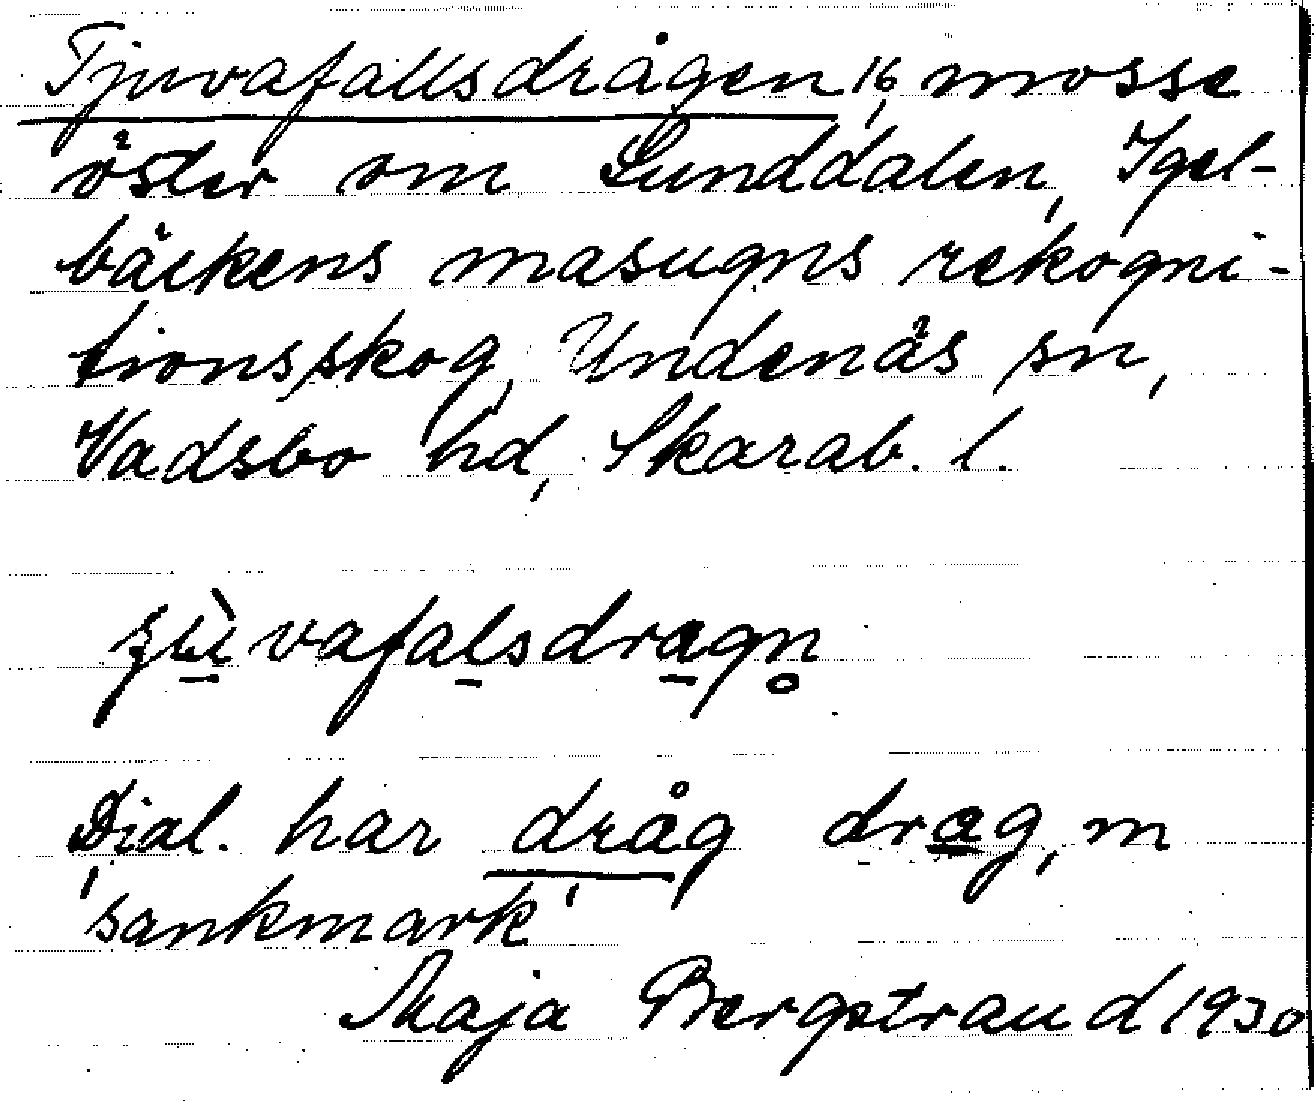 Tjuvafallsdrågen, 16, mosse
öster om Lunddalen, Igel-
bäckens masugns rekogni-
tionsskog, Undenäs sn,
Vadsbo hd, Skarab. l.
Dial. har dråg drag, m
'sankmark'
Maja Bergstrand 1930